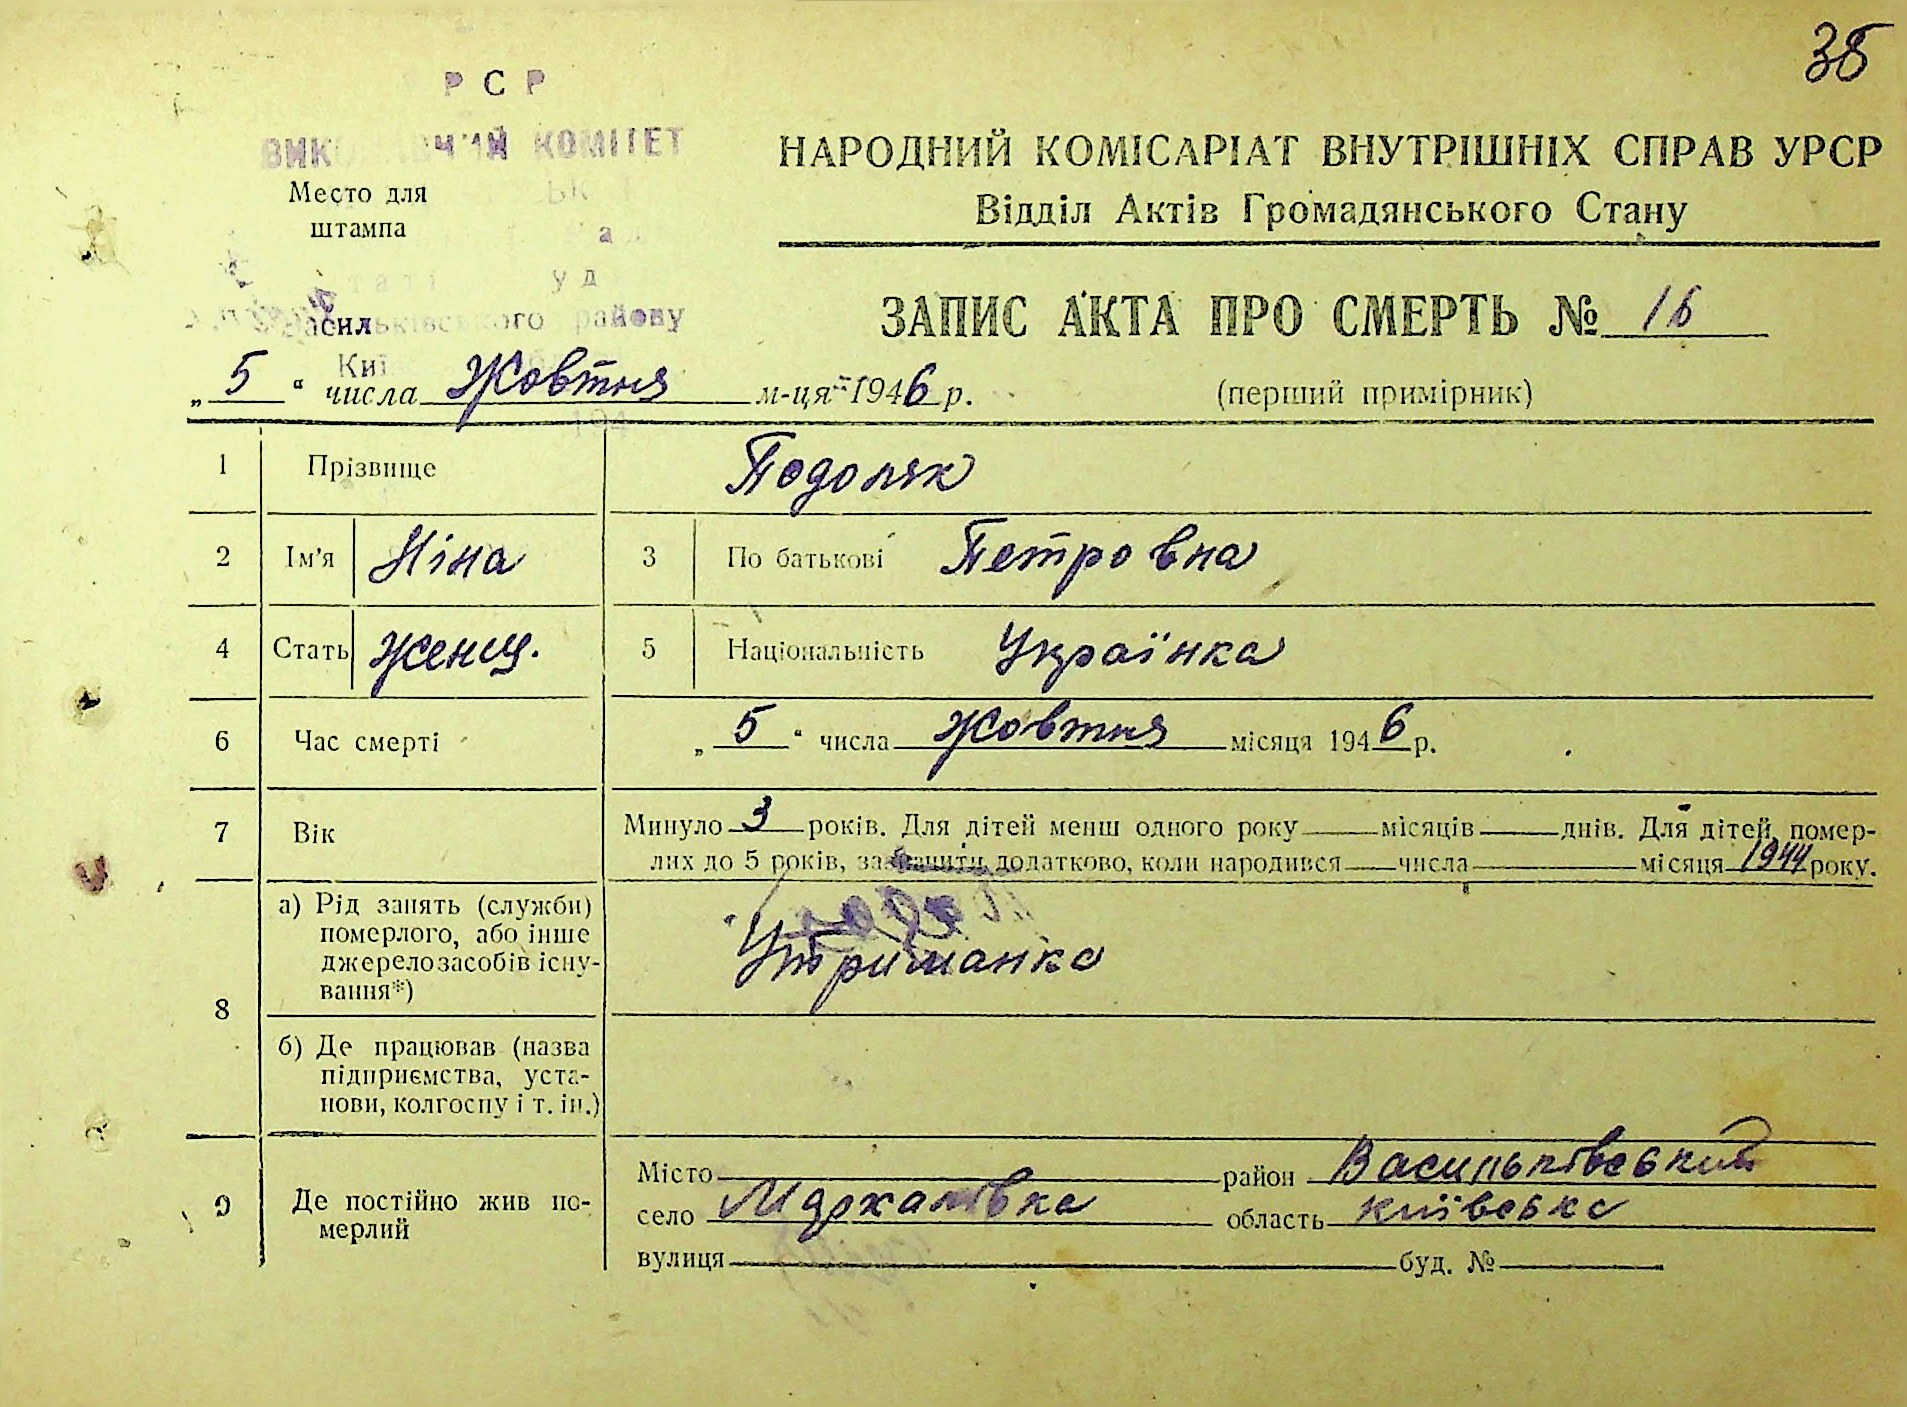 38
РСР
ВИКОНАВЧИЙ КОМІТЕТ
Место для
штампа
Васильківського району
НАРОДНИЙ КОМІСАРІАТ ВНУТРІШНІХ СПРАВ УРСР
Відділ Актів Громадянського Стану
ЗАПИС АКТА ПРО СМЕРТЬ № 16
„ 5 “ числа Жовтня м-ця 1946 р.
(перший примірник)
1 Прізвище Подоляк
2 Ім'я Ніна 3 По батькові Петровна
4 Стать женщ. 5 Національність Українка
6 Час смерті „ 5 “ числа жовтня місяця 1946 р.
7 Вік Минуло 3 років. Для дітей менш одного року місяців днів. Для дітей, помер-
лих до 5 років, зазначити додатково, коли народився числа місяця 1944 року.
8 а) Рід занять (служби)
померлого, або інше
джерело засобів існу-
вання*)
Утриманка
б) Де працював (назва
підприємства, уста-
нови, колгоспу і т. ін.)
9 Де постійно жив по-
мерлий
Місто район Васильківський
село Мархалівка область київська
вулиця буд. №